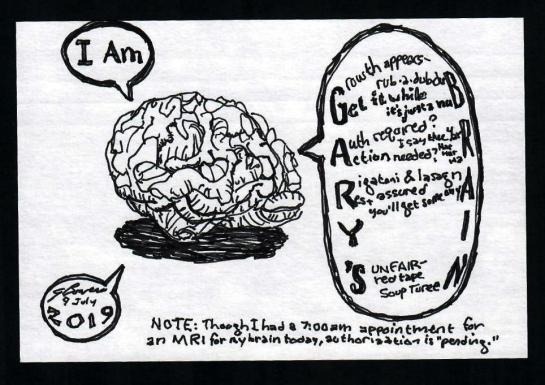 I Am
Growth appears-
rub.a.dubdub
Get it while
it's just a nub
Auth required?
I say blue
Action needed? Har
Har
Ha
Rigatoni & lasagn
Rest assured
you'll get some any
Y
'S UNFAIR-
red tape
Soup Turee
B
R
A
I
N
9 July
2019
NOTE: Though I had a 7:00am appointment for
an MRI for my brain today, authorization is "pending."